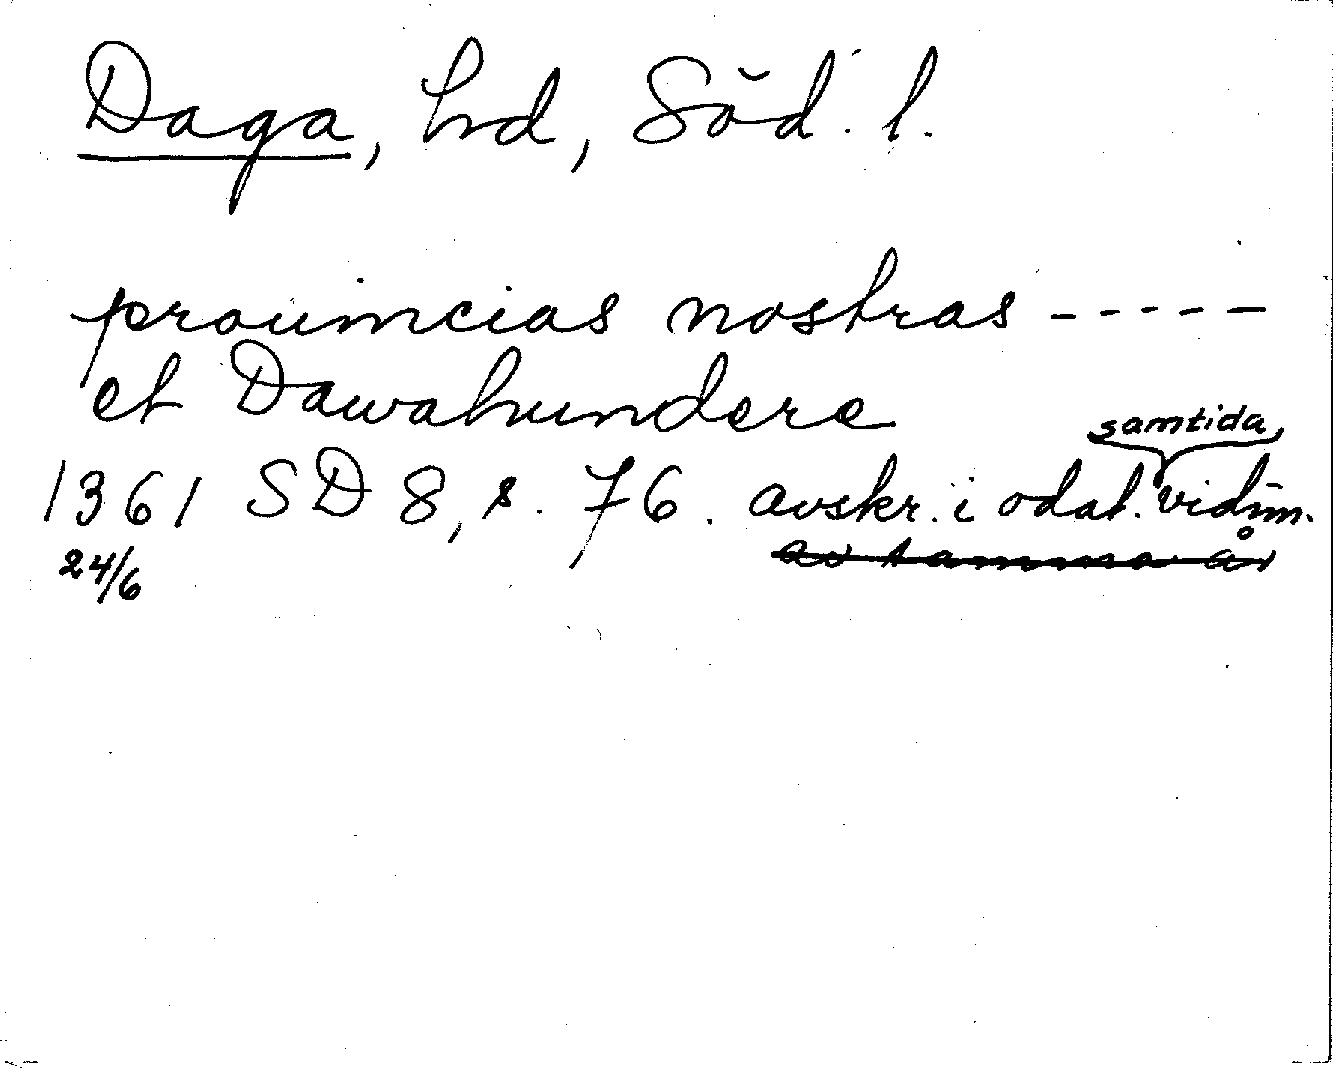 Daga, hd, Söd. l.
prouincias nostras -----
et Dawahundere
samtida,
1361 SD 8, s. 76. avskr. i odat. vidim.
24/6 av samma år